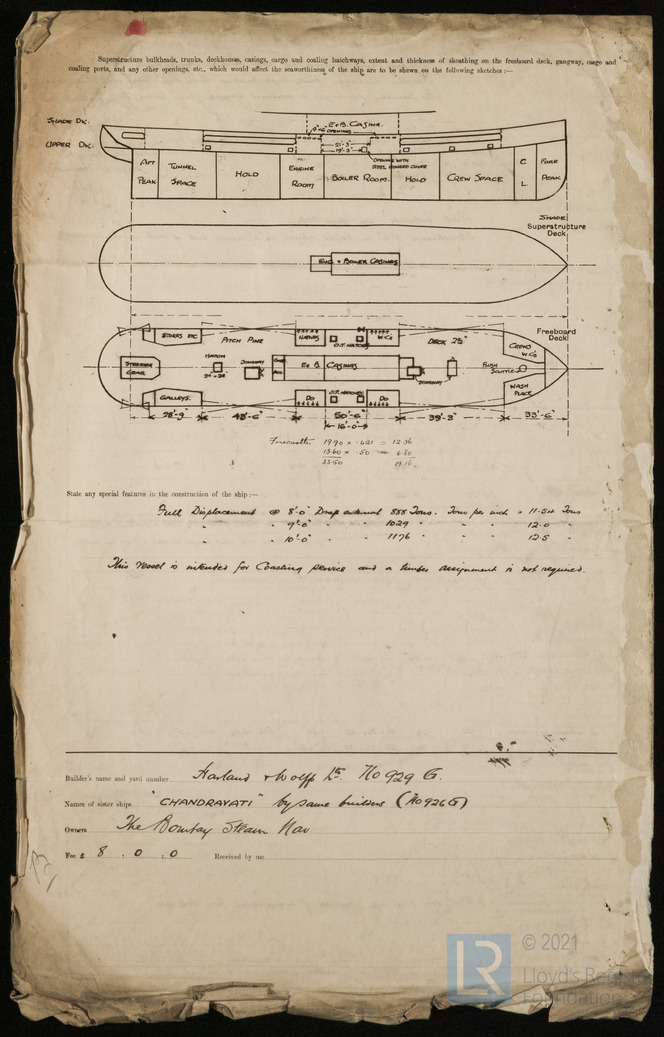 Superstructure bulkheads, trunks, deckhouses, casings, cargo and coaling hatchways, extent and thickness of sheathing on the freeboard deck, gangway, cargo and
coaling ports, and any other openings, etc., which would affect the seaworthiness of the ship are to be shewn on the following sketches :—
SHADE DK.
E & B. CASING.
OPENINGS
UPPER DK.
21'-3"
19'-3"
OPENING WITH
STEEL HINGED COVER
AFT PEAK
TUNNEL SPACE
HOLD
ENGINE ROOM
BOILER ROOM.
HOLD
CREW SPACE
C L
FORE PEAK
SHADE
Superstructure
Deck
ENG. & BOILER CASINGS
Freeboard
Deck
STORES ETC
PITCH PINE
NATIVES
O.T. HATCHES
W.C's
DECK 2½"
CREWS
W.C's
STEERING
GEAR
HATCH
DOORWAY
E & B CASINGS
DOORWAY
FLUSH
SCUTTLE
WASH
PLACE
GALLEYS.
DO
O.T. HATCHES
DO
28'-9"
48'-6"
50'-6"
39'-3"
33'-6"
16'-0"
Forecastle 19.90 x .621 = 12.36
13.60 x .50 = 6.80
33.50 19.16
State any special features in the construction of the ship :—
Full Displacement @ 8'-0" Drap external 888 Tons. Tons per inch = 11.54 Tons
" " 9'-0" " 1029 " " " 12.0 "
" " 10'-0" " 1176 " " " 12.5 "
This Vessel is intended for Coasting service and a timber assignment is not required.
Builder's name and yard number Harland & Wolff Ld. No 929 G.
Names of sister ships "CHANDRAVATI" by same builders (No 926 G)
Owners The Bombay Steam Nav
Fee £ 8 : 0 : 0 Received by me
LR
© 2021
Lloyd's Register
Foundation